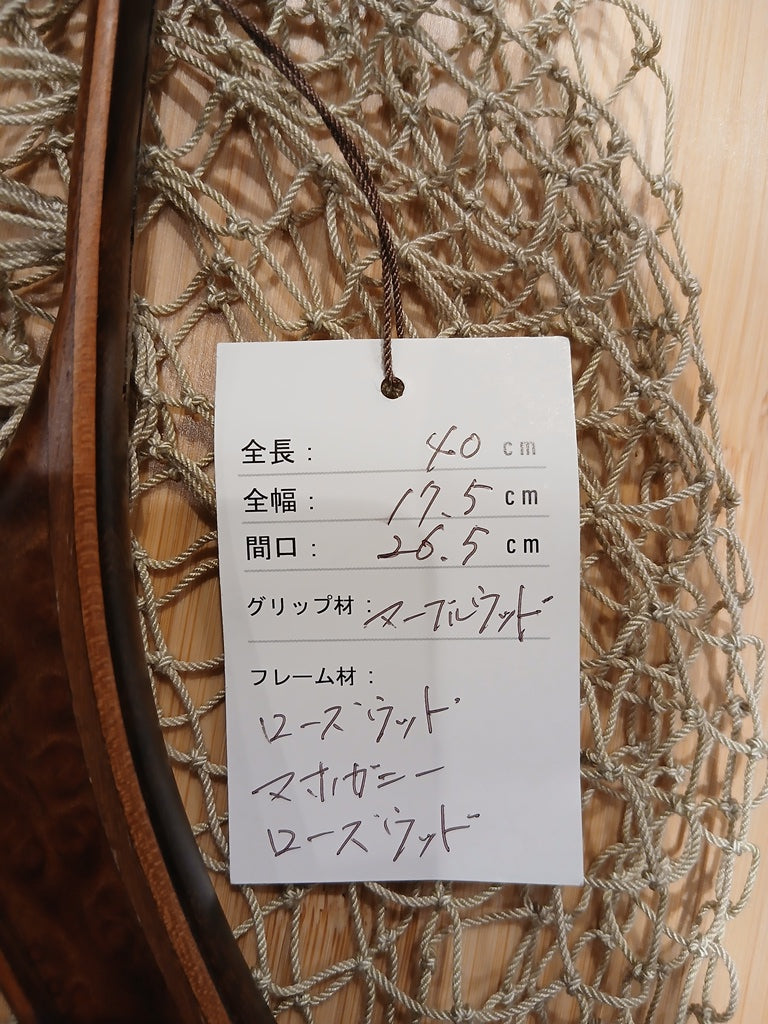 全長： 40 cm
全幅： 17.5 cm
間口： 26.5 cm
グリップ材： マーブルウッド
フレーム材：
ローズウッド
マホガニー
ローズウッド